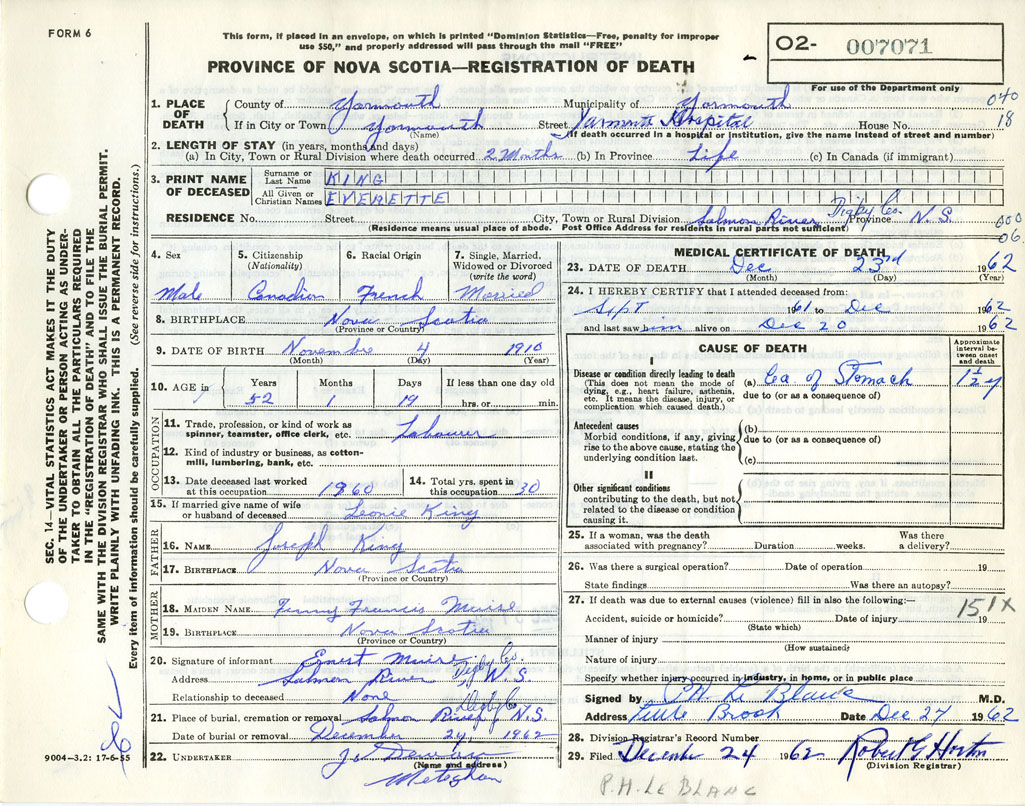 FORM 6
This form, if placed in an envelope, on which is printed "Dominion Statistics—Free, penalty for improper
use $50," and properly addressed will pass through the mail "FREE"
PROVINCE OF NOVA SCOTIA—REGISTRATION OF DEATH
O2- 007071
For use of the Department only
040
18
1. PLACE OF DEATH County of Yarmouth Municipality of Yarmouth
If in City or Town Yarmouth Street Yarmouth Hospital House No.
(Name) (If death occurred in a hospital or institution, give the name instead of street and number)
2. LENGTH OF STAY (in years, months and days)
(a) In City, Town or Rural Division where death occurred 2 Months (b) In Province Life (c) In Canada (if immigrant)
3. PRINT NAME OF DECEASED Surname or Last Name KING
All Given or Christian Names EVERETTE
RESIDENCE No. Street City, Town or Rural Division Salmon River Digby Co. Province N.S.
(Residence means usual place of abode. Post Office Address for residents in rural parts not sufficient)
000
06.
4. Sex 5. Citizenship (Nationality) 6. Racial Origin 7. Single, Married, Widowed or Divorced (write the word)
Male Canadian French Married
8. BIRTHPLACE Nova Scotia
(Province or Country)
9. DATE OF BIRTH Novembre 4 1910
(Month) (Day) (Year)
10. AGE in Years Months Days If less than one day old
52 1 19 hrs. or min.
OCCUPATION
11. Trade, profession, or kind of work as
spinner, teamster, office clerk, etc. Labourer
12. Kind of industry or business, as cotton-
mill, lumbering, bank, etc.
13. Date deceased last worked at this occupation 1960 14. Total yrs. spent in this occupation 30
15. If married give name of wife
or husband of deceased Leonie King
FATHER
16. NAME Joseph King
17. BIRTHPLACE Nova Scotia
(Province or Country)
MOTHER
18. MAIDEN NAME Francis Muise
19. BIRTHPLACE Nova Scotia
(Province or Country)
20. Signature of informant Ernest Muise
Address Salmon River Digby Co. N.S.
Relationship to deceased None
21. Place of burial, cremation or removal Salmon River Digby Co N.S.
Date of burial or removal December 24 1962
22. UNDERTAKER
(Name and address)
Meteghan
MEDICAL CERTIFICATE OF DEATH
23. DATE OF DEATH Dec 23rd 1962
(Month) (Day) (Year)
24. I HEREBY CERTIFY that I attended deceased from:
Sept 1961 to Dec 1962
and last saw him alive on Dec 20 1962
CAUSE OF DEATH
Approximate interval between onset and death
I
Disease or condition directly leading to death (a) Ca of Stomach 1½ y
(This does not mean the mode of dying, e.g., heart failure, asthenia, etc. It means the disease, injury, or complication which caused death.)
due to (or as a consequence of)
Antecedent causes
Morbid conditions, if any, giving rise to the above cause, stating the underlying condition last.
(b)
due to (or as a consequence of)
(c)
II
Other significant conditions
contributing to the death, but not related to the disease or condition causing it.
25. If a woman, was the death associated with pregnancy? Duration weeks. Was there a delivery?
26. Was there a surgical operation? Date of operation 19
State findings Was there an autopsy?
27. If death was due to external causes (violence) fill in also the following:—
151X
Accident, suicide or homicide? Date of injury 19
(State which)
Manner of injury
(How sustained)
Nature of injury
Specify whether injury occurred in industry, in home, or in public place
Signed by P.H. Le Blanc M.D.
Address Date Dec 27 1962
28. Division Registrar's Record Number
29. Filed December 24 1962 Robert G Horton
(Division Registrar)
P.H. LE BLANC
SEC. 14—VITAL STATISTICS ACT MAKES IT THE DUTY
OF THE UNDERTAKER OR PERSON ACTING AS UNDER-
TAKER TO OBTAIN ALL THE PARTICULARS REQUIRED
IN THE "REGISTRATION OF DEATH" AND TO FILE THE
SAME WITH THE DIVISION REGISTRAR WHO SHALL ISSUE THE BURIAL PERMIT.
WRITE PLAINLY WITH UNFADING INK. THIS IS A PERMANENT RECORD.
Every item of information should be carefully supplied. (See reverse side for instructions.)
9004-3.2: 17-6-55